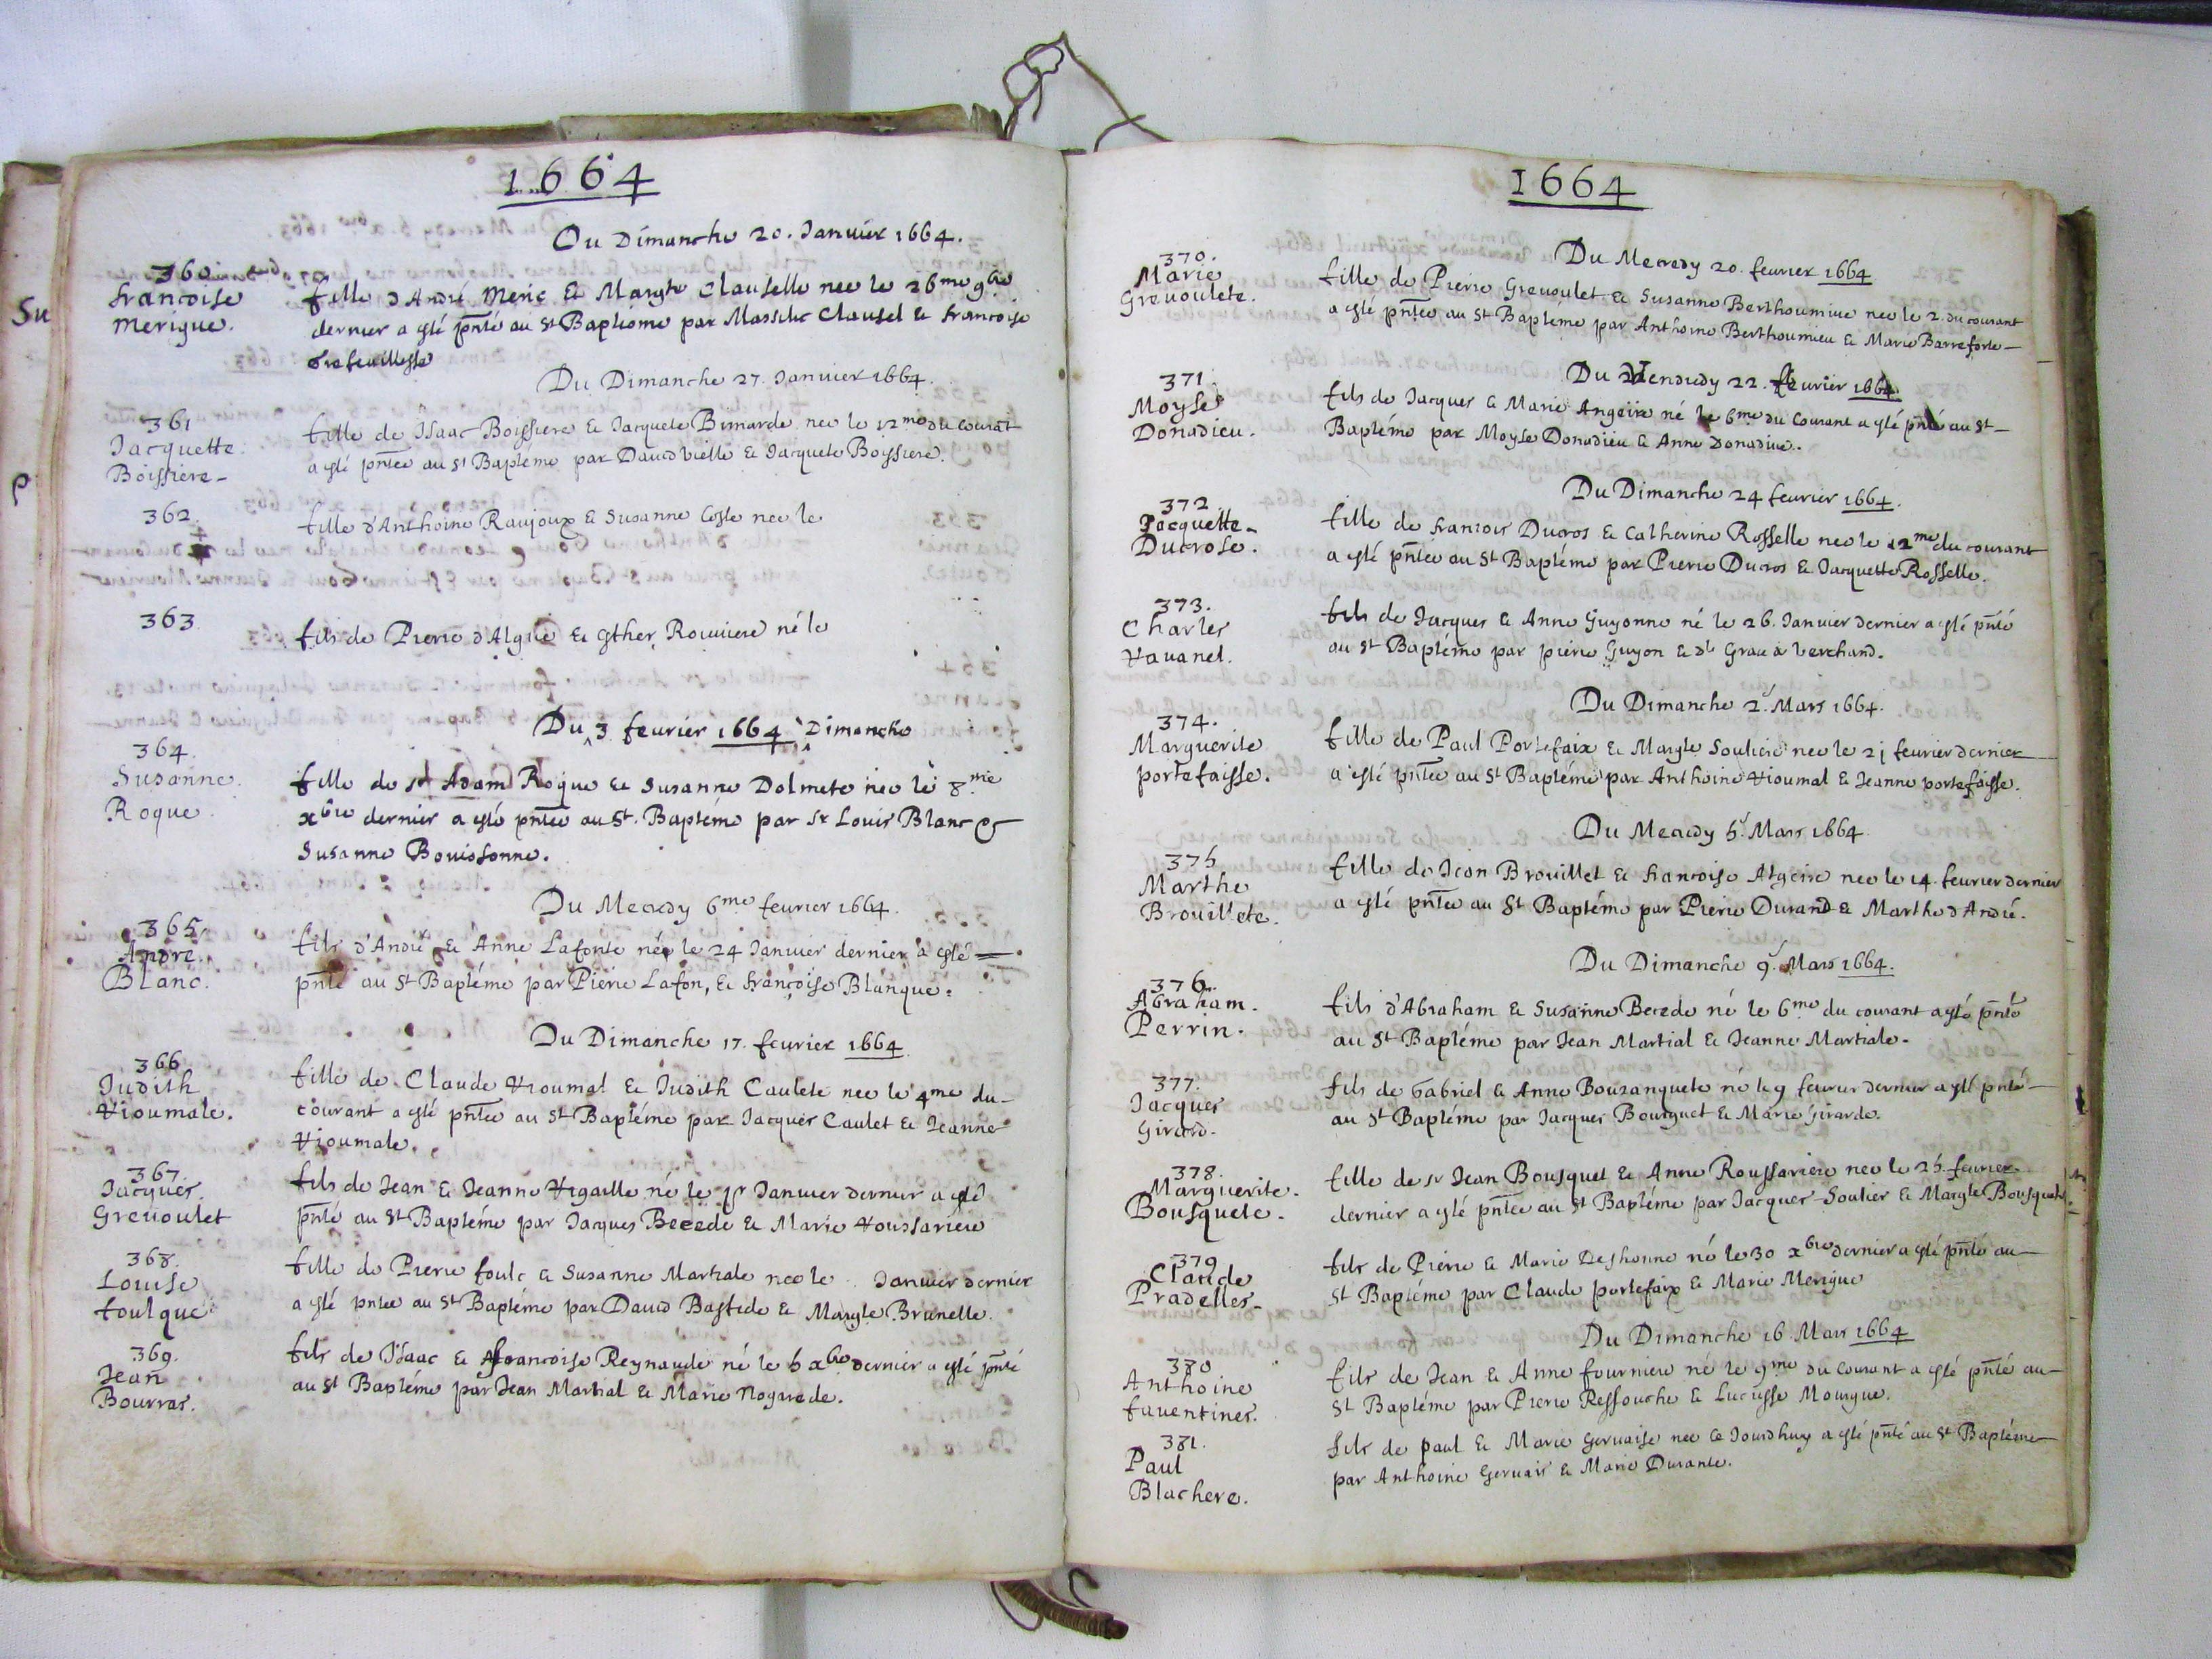 1664
Du Dimanche 20. Januier 1664.
360.
francoise
merigue.
fille d'André Meric & Margte Clauselle nee le 26me 9bre
dernier a esté pñté au St Baptéme par Massilic Clausel & francoise
Du Dimanche 27. Januier 1664.
361
Jacquette
Boissiere-
fille de Isaac Boissiere & Jacquete Bimarde nee le 12me du courãt
a esté pñtee au St Baptéme par Dauid vielle & Jacquete Boissiere.
362.
fille d'Anthoine Raujoux & Susanne Coste nee le
363
fils de Pierre d'Algue & Esther Rouuiere né le
Du 3 feurier 1664 Dimanche
364.
Susanne
Roque
fille de sr Adam Roque & Susanne Dolmete nee le 8me
xbre dernier a esté pñtee au St. Baptéme par Sr Louis Blanc &
Susanne Bouissonne.
Du Mecredy 6me feurier 1664.
365.
Andre
Blanc.
fils d'André & Anne Lafonte née le 24 Januier dernier a esté
pñté au St Baptéme par Pierre Lafon, & françoise Blanque.
Du Dimanche 17. feurier 1664
366
Judith
Vioumale.
fille de Claude Vioumal & Judith Caulete nee le 4me du-
courant a esté pñtee au St Baptéme par Jacques Caulet & Jeanne
Vioumale.
367.
Jacques
Greuoulet
fils de Jean & Jeanne Vigaille né le Januier dernier a esté
pñté au St Baptéme par Jacques Becede & Marie Voussariere
368.
Louise
foulque
fille de Pierre foulc & Susanne Martiale nee le .. Januier dernier
a esté pñtee au St Baptéme par Dauid Bastide & Margte Brunelle.
369.
Jean
Bourras.
fils de Isaac & francoise Reynaude né le 6 xbre dernier a esté pñté
au St Baptéme par Jean Martial & Marie Nogarede.
1664
Du Mecredy 20. feurier 1664
370.
Marie
Greuoulete.
fille de Pierre Greuoulet & Susanne Berthoumiue nee le 2. du courant
a esté pñtee au St Baptéme par Anthoine Berthoumieu & Marie Barreforte-
Du Vendredy 22. feurier 1664.
371.
Moyse
Donadieu.
fils de Jacques & Marie Angeire né le 6me du courant a esté pñté au St-
Baptéme par Moyse Donadieu & Anne Donadiue.
Du Dimanche 24 feurier 1664.
372
Jacquette-
Ducrose.
fille de francois Ducros & Catherine Rosselle nee le 12me du courant
a esté pñtee au St Baptéme par Pierre Ducros & Jacquette Rosselle.
373.
Charles
Vauanel.
fils de Jacques & Anne Guyonne né le 26. Januier dernier a esté pñté
au St Baptéme par pierre Guyon & dle Grace de verchand.
Du Dimanche 2. Mars 1664.
374.
Marguerite
portefaisse.
fille de Paul Portefaix & Margte Souliere nee le 21 feurier dernier
a esté pñtee au St Baptéme par Anthoine Vioumal & Jeanne portefaisse.
Du Mecredy 5. Mars 1664
375
Marthe
Brouillete.
fille de Jean Brouillet & francoise Algeire nee le 14. feurier dernier
a esté pñtee au St Baptéme par Pierre Durand & Marthe d'André.
Du Dimanche 9. Mars 1664.
376.
Abraham.
Perrin.
fils d'Abraham & Susanne Becede né le 6me du courant a esté pñté
au St Baptéme par Jean Martial & Jeanne Martiale.
377.
Jacques
Girard.
fils de Gabriel & Anne Bouzanquete né le 9 feurier dernier a esté pñté-
au St Baptéme par Jacques Bourguet & Marie Girarde.
378.
Marguerite.
Bousquete.
fille de sr Jean Bousquet & Anne Roussariere nee le 25. feurier
dernier a esté pñtee au St Baptéme par Jacques Soulier & Margte Bousquete
379
Claude
Pradelles-
fils de Pierre & Marie Deshonne né le 30 xbre dernier a esté pñté au-
St Baptéme par Claude portefaix & Marie Merigue
Du Dimanche 16. Mars 1664
380
Anthoine
fauentines.
fils de Jean & Anne fourniere né le 9me du courant a esté pñté au-
St Baptéme par Pierre Ressouche & Lucresse Mourgue.
381.
Paul
Blachere.
fils de paul & Marie Geruaise nee ce Jourdhuy a esté pñté au St Baptéme
par Anthoine Geruais & Marie Durante.